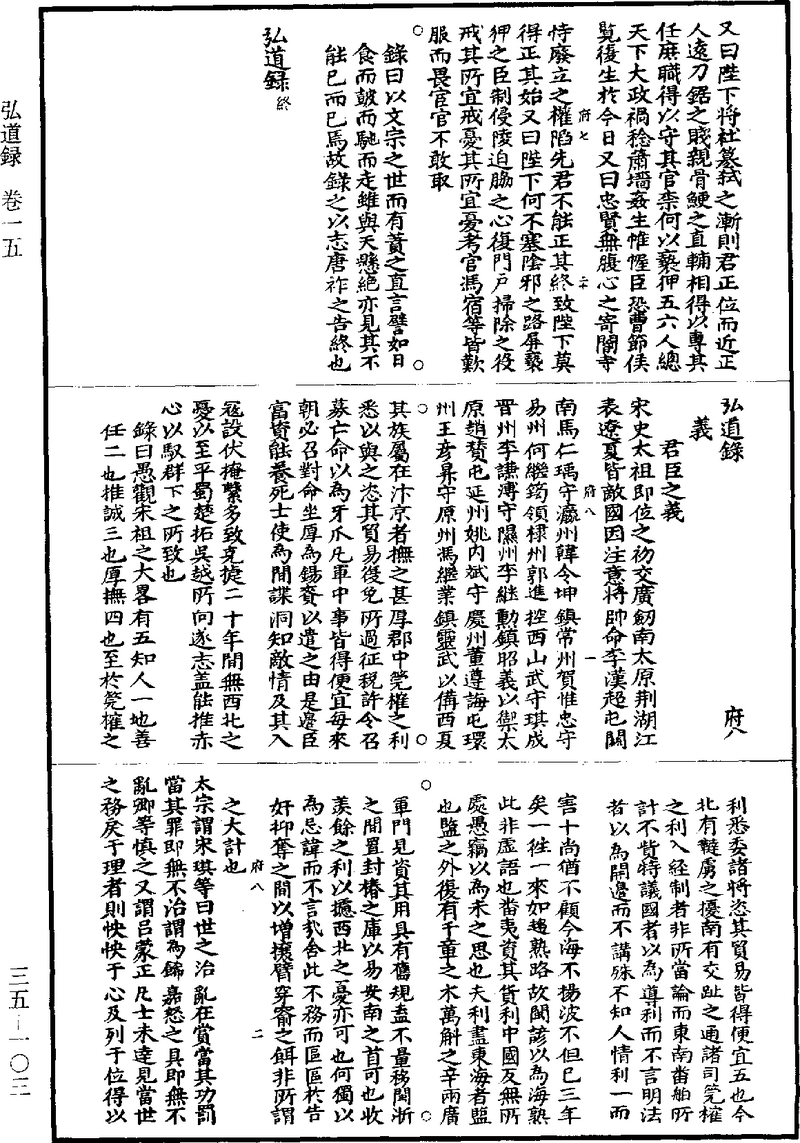 弘道録　卷一五
三五－一〇三
又曰陛下將杜篡弑之漸則君正位而近正
人遠刀鋸之賤親骨鯁之直輔相得以專其
任庶職得以守其官柰何以褻狎五六人總
天下大政禍稔蕭墻姦生帷幄臣恐曹節侯
覽復生於今日又曰忠賢無腹心之寄閽寺
府七　二十
恃廢立之權陷先君不能正其終致陛下莫
得正其始又曰陛下何不塞陰邪之路屏褻
狎之臣制侵陵迫脇之心復門戶掃除之役
戒其所宜戒憂其所宜憂考官馮宿等皆歎
服而畏宦官不敢取
錄曰以文宗之世而有蕡之直言譬如日
食而皷而馳而走雖與天懸絕亦見其不
能已而已焉故錄之以志唐祚之告終也
弘道録終
弘道録　府八
義
君臣之義
宋史太祖即位之初交廣劒南太原荆湖江
表遼夏皆敵國因注意將帥命李漢超屯關
府八　一
南馬仁瑀守瀛州韓令坤鎮常州賀惟忠守
易州何繼筠領棣州郭進控西山武守琪戍
晋州李謙溥守隰州李繼勳鎮昭義以禦太
原趙賛屯延州姚內斌守慶州董遵誨屯環
州王彥昇守原州馮繼業鎮靈武以備西夏
其族屬在汴京者撫之甚厚郡中筦榷之利
悉以與之恣其貿易復免所過征税許令召
募亡命以為牙爪凡軍中事皆得便宜每來
朝必召對命坐厚為錫賚以遣之由是邊臣
富貲能養死士使為間諜洞知敵情及其入
寇設伏掩擊多致克捷二十年間無西北之
憂以至平蜀楚拓吳越所向遂志盖能推赤
心以馭群下之所致也
錄曰愚觀宋祖之大畧有五知人一也善
任二也推誠三也厚撫四也至於筦榷之
利悉委諸將恣其貿易皆得便宜五也今
北有韃虜之擾南有交趾之通諸司筦榷
之利入經制者非所當論而東南畨舶所
計不貲特議國者以為導利而不言明法
者以為開邊而不講殊不知人情利一而
害十尚猶不顧今海不揚波不但已三年
矣一徃一來如趨熟路故閩諺以為海熟
此非虛語也畨夷資其貨利中國反無所
處愚竊以為未之思也夫利盡東海者鹽
也鹽之外復有千章之木萬斛之辛兩廣
軍門見資其用具有舊規盍不量移閩浙
之間置封樁之庫以易安南之首可也收
羡餘之利以攄西北之憂亦可也何獨以
為忌諱而不言哉舍此不務而區區於告
奸抑奪之間以增攘臂穿窬之餌非所謂
府八　二
之大計也
太宗謂宋琪等曰世之治亂在賞當其功罰
當其罪即無不治謂為飾喜怒之具即無不
亂卿等慎之又謂吕蒙正凡士未達見當世
之務戾于理者則怏怏于心及列于位得以